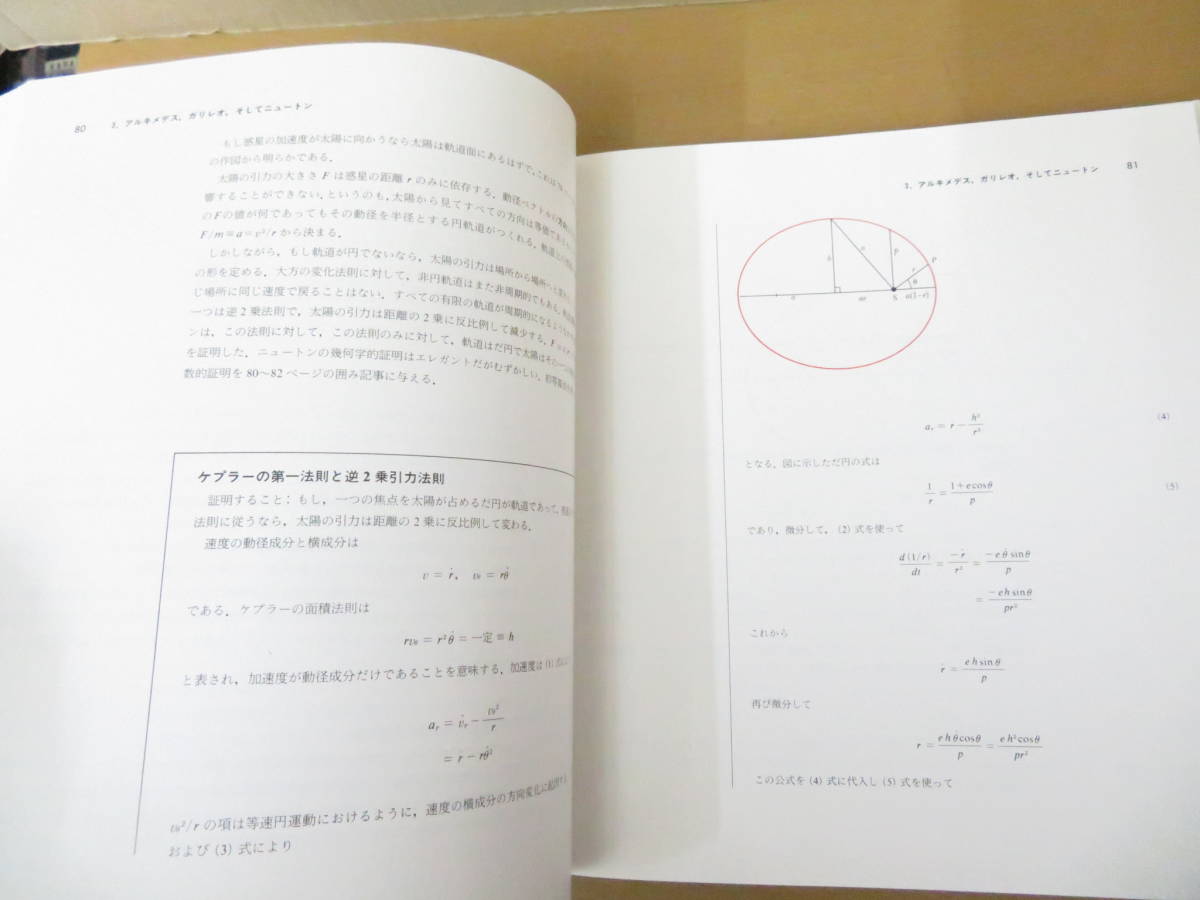 80 3. アルキメデス,ガリレオ,そしてニュートン
もし惑星の加速度が太陽に向かうなら太陽は軌道面にあるはずで,これは
の作図から明らかである.
太陽の引力の大きさ F は惑星の距離 r のみに依存する.動径ベクトルの
響することができない,というのも,太陽から見てすべての方向は等価で
のFの値が何であってもその動径を半径とする円軌道がつくれる.
F/m≡a=v²/r から決まる.
しかしながら,もし軌道が円でないなら,太陽の引力は場所から場所へと
の形を定める.大方の変化法則に対して,非円軌道はまた非周期的でもある.
じ場所に同じ速度で戻ることはない.すべての有限の軌道が周期的になるような
一つは逆2乗法則で,太陽の引力は距離の2乗に反比例して減少する.
ンは,この法則に対して,この法則のみに対して,軌道はだ円で太陽はその一つの
を証明した.ニュートンの幾何学的証明はエレガントだがむずかしい.
数的証明を 80〜82 ページの囲み記事に与える.
ケプラーの第一法則と逆2乗引力法則
証明すること:もし,一つの焦点を太陽が占めるだ円が軌道であって,
法則に従うなら,太陽の引力は距離の2乗に反比例して変わる.
速度の動径成分と横成分は
v = ṙ, vθ = rθ̇
である.ケプラーの面積法則は
rvθ = r²θ̇ = 一定 ≡ h
と表され,加速度が動径成分だけであることを意味する.加速度は
ar = v̇r − vθ²/r
= r̈ − rθ̇²
vθ²/r の項は等速円運動におけるように,速度の横成分の方向変化に
および (3) 式により
3. アルキメデス,ガリレオ,そしてニュートン 81
b
a
p
r
P
θ
a
ae
S
a(1−e)
ar = r̈ − h²/r³ (4)
となる.図に示しただ円の式は
1/r = (1+ecosθ)/p (5)
であり,微分して,(2) 式を使って
d(1/r)/dt = −ṙ/r² = −eθ̇sinθ/p
= −ehsinθ/pr²
これから
ṙ = ehsinθ/p
再び微分して
r̈ = ehθ̇cosθ/p = eh²cosθ/pr²
この公式を (4) 式に代入し (5) 式を使って